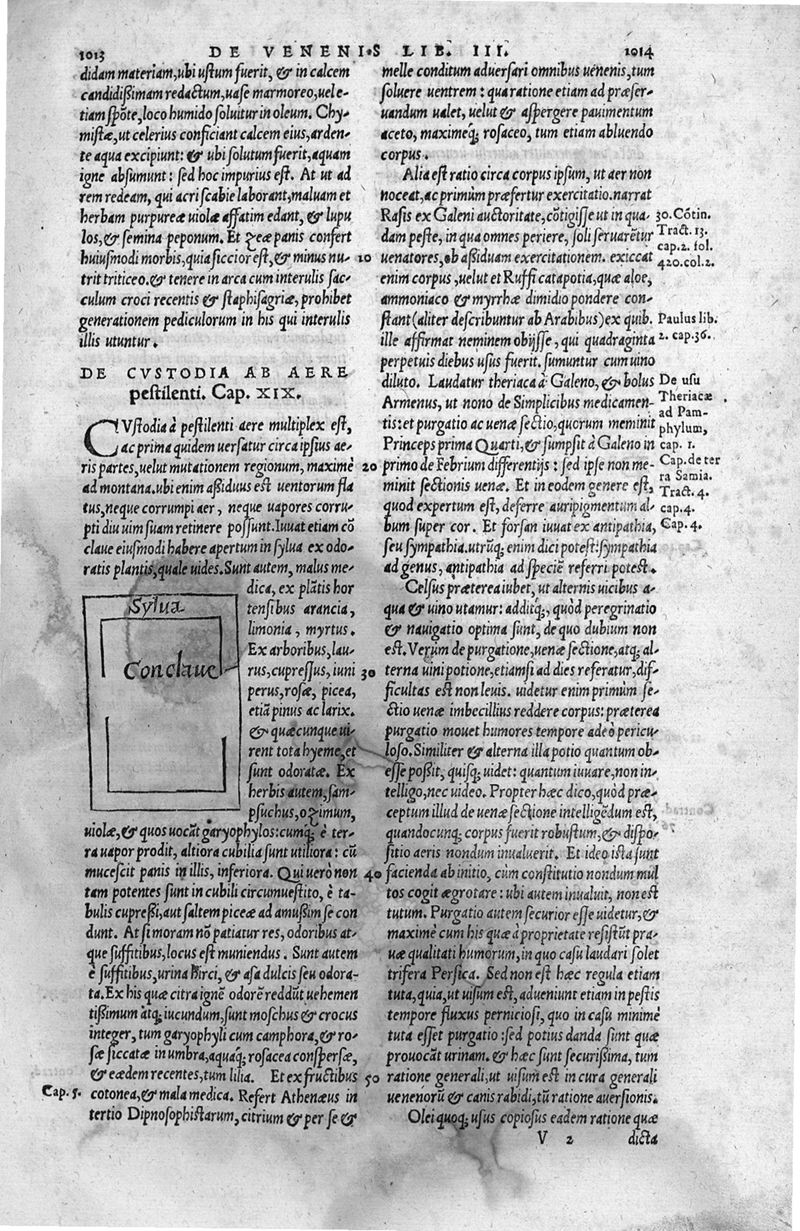 1013 DE VENENIS LIB. III. 1014
didam materiam, ubi ustum fuerit, & in calcem
candidißimam redactum, uase marmoreo, uel e-
tiam spõte, loco humido soluitur in oleum. Chy-
mistæ, ut celerius conficiant calcem eius, arden-
te aqua excipiunt: & ubi solutum fuerit, aquam
igne absumunt: sed hoc impurius est. At ut ad
rem redeam, qui acri scabie laborant, maluam et
herbam purpureæ uiolæ affatim edant, & lupu
los, & semina peponum. Et zeæ panis confert
huiusmodi morbis, quia siccior est, & minus nu-
trit triticeo. & tenere in arca cum interulis sac-
culum croci recentis & staphisagriæ, prohibet
generationem pediculorum in his qui interulis
illis utuntur.
DE CVSTODIA AB AERE
pestilenti. Cap. XIX.
CVstodia à pestilenti aere multiplex est,
ac prima quidem uersatur circa ipsius ae-
ris partes, uelut mutationem regionum, maximè
ad montana. ubi enim aßiduus est uentorum fla
tus, neque corrumpi aer, neque uapores corru-
pti diu uim suam retinere possunt. Iuuat etiam cõ
claue eiusmodi habere apertum in sylua ex odo-
ratis plantis, quale uides. Sunt autem, malus me-
dica, ex plãtis hor
tensibus arancia,
limonia, myrtus.
Ex arboribus, lau-
rus, cupressus, iuni
perus, rosæ, picea,
etiã pinus ac larix.
& quæcunque ui-
rent tota hyeme, et
sunt odoratæ. Ex
herbis autem, sam-
psuchus, ozimum,
Sylua
Conclaue
uiolæ, & quos uocãt garyophylos: cumq; è ter-
ra uapor prodit, altiora cubilia sunt utiliora: cũ
mucescit panis in illis, inferiora. Qui uerò non
tam potentes sunt in cubili circumuestito, è ta-
bulis cupreßi, aut saltem piceæ ad amußim se con
dunt. At si moram nõ patiatur res, odoribus at-
que suffitibus, locus est muniendus. Sunt autem
è suffitibus, urina hirci, & asa dulcis seu odora-
ta. Ex his quæ citra ignẽ odorẽ reddũt uehemen
tißimum atq; iucundum, sunt moschus & crocus
integer, tum garyophyli cum camphora, & ro-
sæ siccatæ in umbra, aquaq; rosacea conspersæ,
& eædem recentes, tum lilia. Et ex fructibus
cotonea, & mala medica. Refert Athenæus in
tertio Dipnosophistarum, citrium & per se &
Cap. 5.
10
20
30
40
50
melle conditum aduersari omnibus uenenis, tum
soluere uentrem: qua ratione etiam ad præser-
uandum ualet, uelut & aspergere pauimentum
aceto, maximeq; rosaceo, tum etiam abluendo
corpus.
Alia est ratio circa corpus ipsum, ut aer non
noceat, ac primùm præfertur exercitatio. narrat
Rasis ex Galeni auctoritate, cõtigisse ut in qua-
dam peste, in qua omnes periere, soli seruarẽtur
uenatores, ob aßiduam exercitationem. exiccat
enim corpus, uelut et Ruffi catapotia, quæ aloe,
ammoniaco & myrrhæ dimidio pondere con-
stant (aliter describuntur ab Arabibus) ex quib.
ille affirmat neminem obijsse, qui quadraginta
perpetuis diebus usus fuerit. sumuntur cum uino
diluto. Laudatur theriaca à Galeno, & bolus
Armenus, ut nono de Simplicibus medicamen-
tis: et purgatio ac uenæ sectio, quorum meminit
Princeps prima Quarti, & sumpsit à Galeno in
primo de Febrium differentijs: sed ipse non me-
minit sectionis uenæ. Et in eodem genere est,
quod expertum est, deferre auripigmentum al-
bum super cor. Et forsan iuuat ex antipathia,
seu sympathia. utrũq; enim dici potest: sympathia
ad genus, antipathia ad speciẽ referri potest.
Celsus præterea iubet, ut alternis uicibus a-
qua & uino utamur: additq;, quòd peregrinatio
& nauigatio optima sunt, de quo dubium non
est. Verùm de purgatione, uenæ sectione, atq; al-
terna uini potione, etiamsi ad dies referatur, dif-
ficultas est non leuis. uidetur enim primùm se-
ctio uenæ imbecillius reddere corpus: præterea
purgatio mouet humores tempore adeò pericu-
loso. Similiter & alterna illa potio quantum ob-
esse poßit, quisq; uidet: quantum iuuare, non in-
telligo, nec uideo. Propter hæc dico, quòd præ-
ceptum illud de uenæ sectione intelligẽdum est,
quandocunq; corpus fuerit robustum, & dispo-
sitio aeris nondum inualuerit. Et ideo ista sunt
facienda ab initio, cùm constitutio nondum mul
tos cogit ægrotare: ubi autem inualuit, non est
tutum. Purgatio autem securior esse uidetur, &
maximè cum his quæ à proprietate resistũt pra-
uæ qualitati humorum, in quo casu laudari solet
trifera Persica. Sed non est hæc regula etiam
tuta, quia, ut uisum est, adueniunt etiam in pestis
tempore fluxus perniciosi, quo in casu minimè
tuta esset purgatio: sed potius danda sunt quæ
prouocãt urinam. & hæc sunt securißima, tum
ratione generali, ut uisum est in cura generali
uenenorũ & canis rabidi, tũ ratione auersionis.
Olei quoq; usus copiosus eadem ratione quæ
V 2 dicta
30. Cõtin.
Tract. 13.
cap. 2. fol.
420. col. 2.
Paulus lib.
2. cap. 36.
De usu
Theriacæ
ad Pam-
phylum,
cap. 1.
Cap. de ter
ra Samia.
Tract. 4.
cap. 4.
Cap. 4.